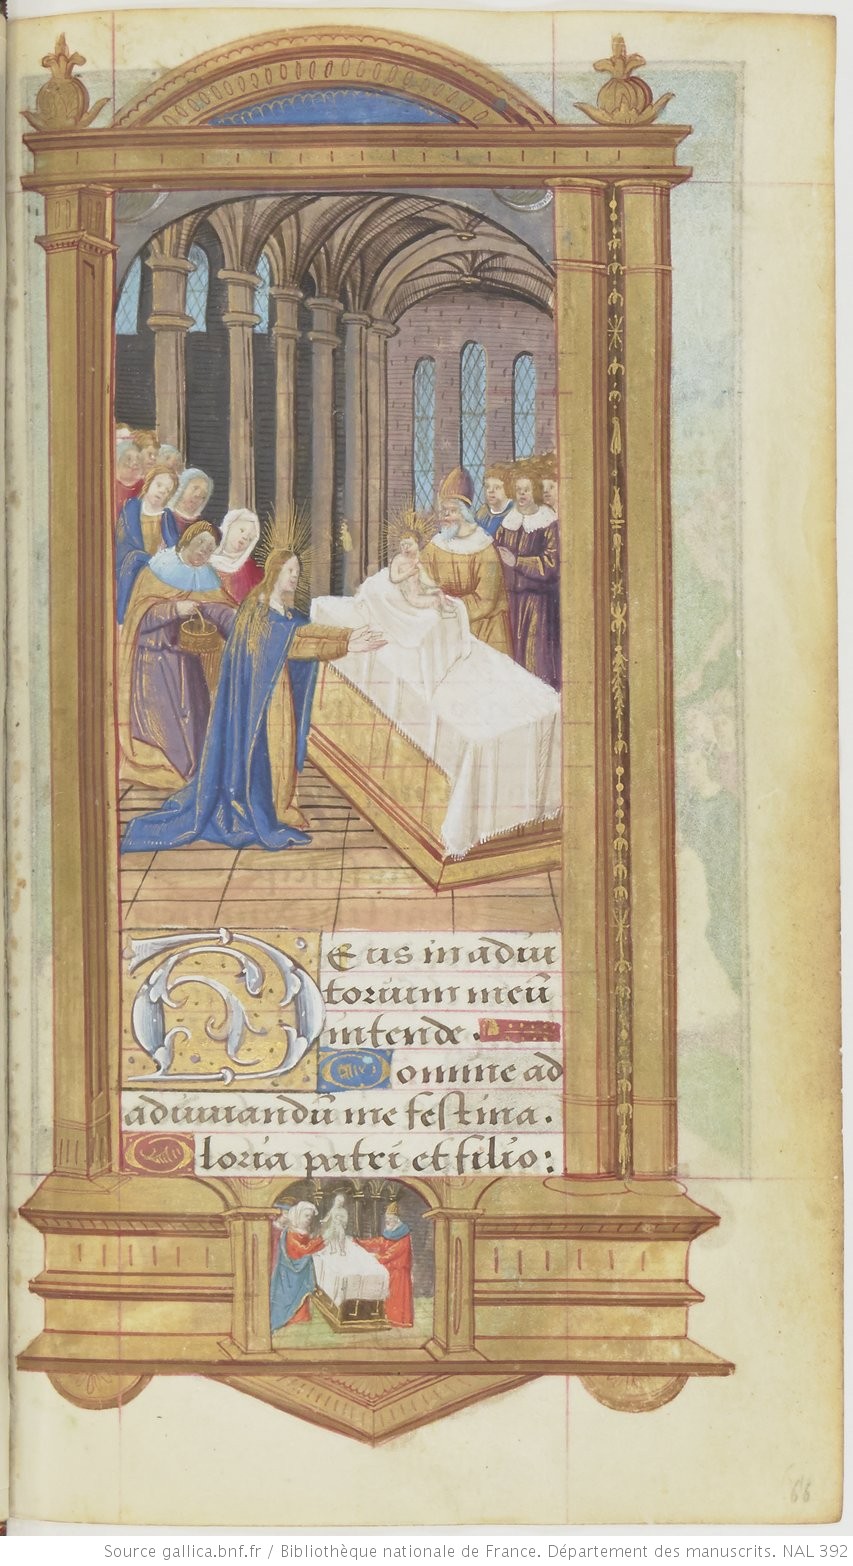 Deus in adiu
torium meū
intende.
Domine ad
adiuuandū me festina.
Gloria patri et filio:
66
Source gallica.bnf.fr / Bibliothèque nationale de France. Département des manuscrits. NAL 392